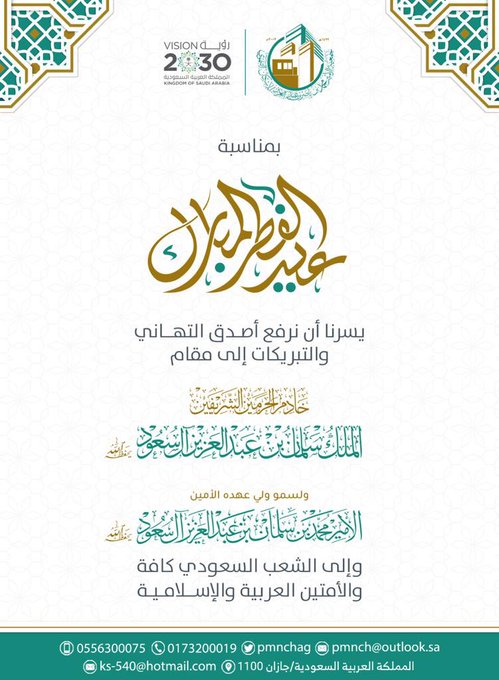 VISION رؤيـــة
2030
المملكة العربية السعودية
KINGDOM OF SAUDI ARABIA
بمناسبة
عيد الفطر المبارك
يسرنا أن نرفع أصدق التهـــاني
والتبريكات إلى مقام
خادم الحرمين الشريفين
الملك سلمان بن عبدالعزيز آل سعود حفظه الله
ولسمو ولي عهده الأمين
الأمير محمد بن سلمان بن عبدالعزيز آل سعود حفظه الله
وإلى الشعب السعودي كافة
والأمتين العربية والإسـلاميـة
0556300075 0173200019 pmnchag pmnch@outlook.sa
ks-540@hotmail.com المملكة العربية السعودية/جازان 1100